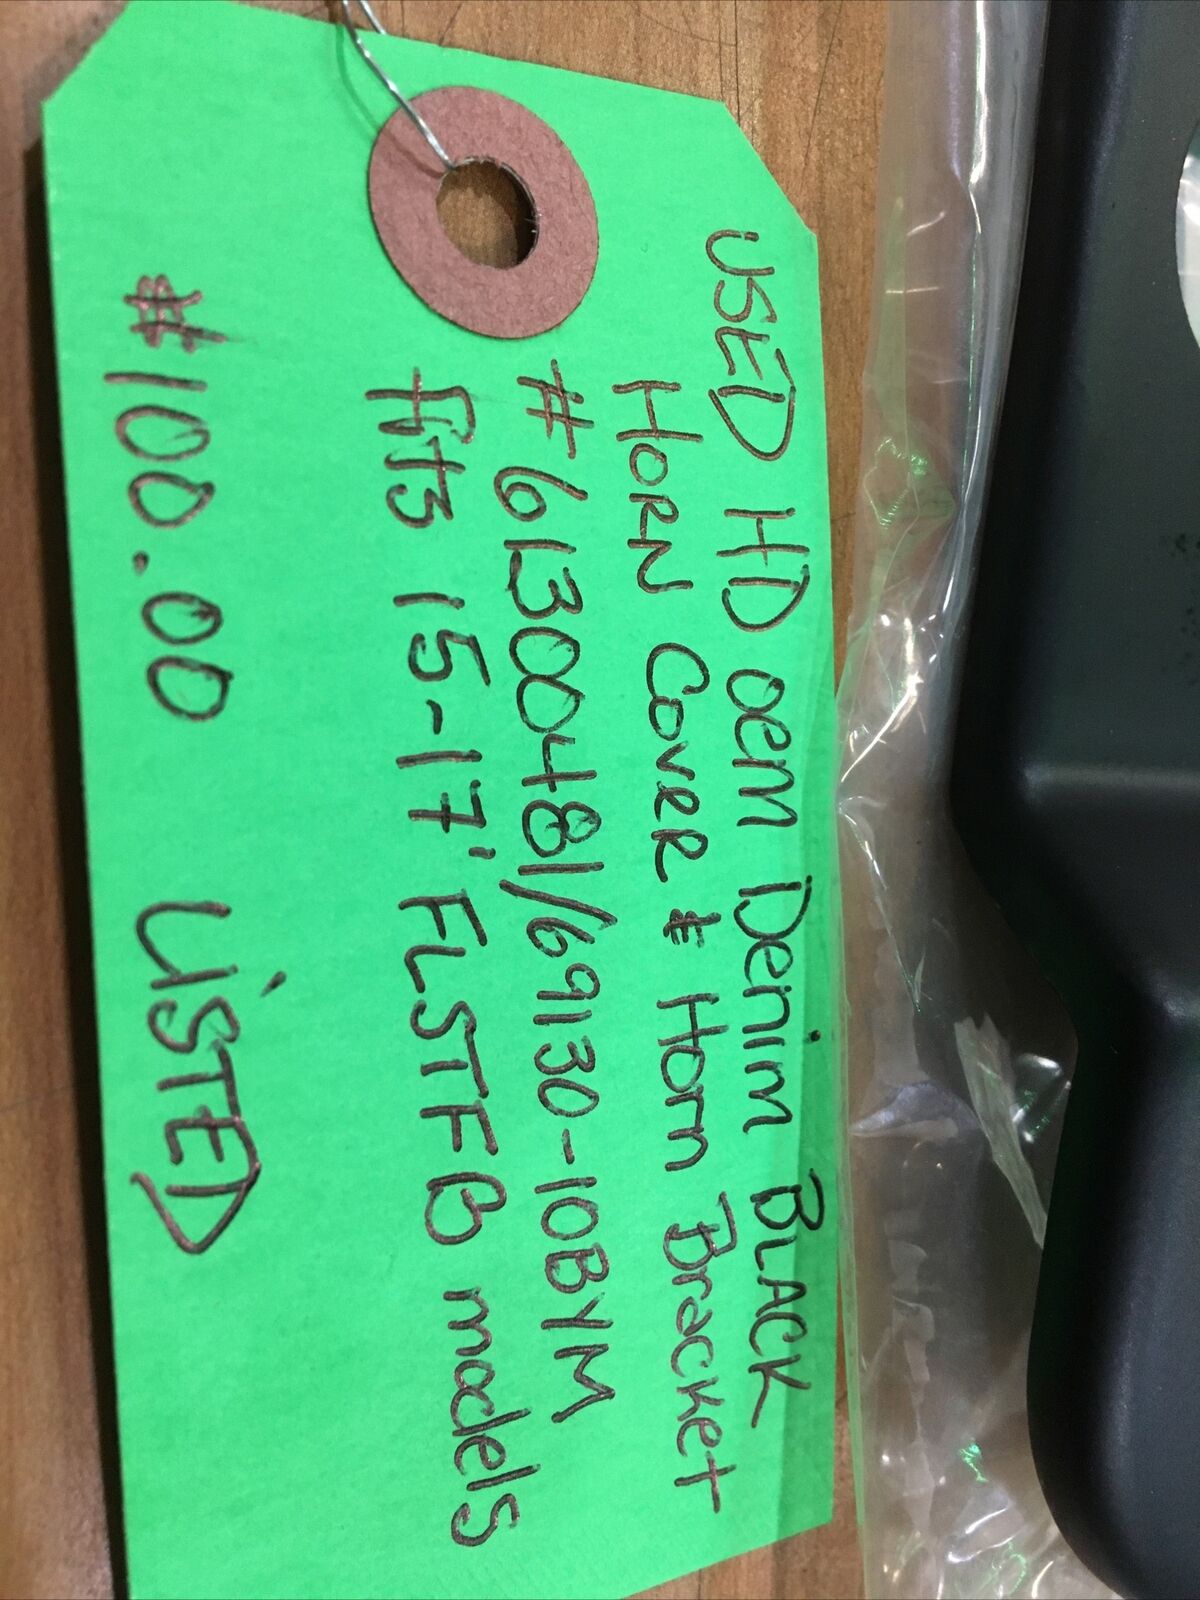 USED HD oem Denim BLACK
HORN COVER & Horn Bracket
#61300481/69130-10BYM
fits 15-17' FLSTFB models
#100.00 LISTED